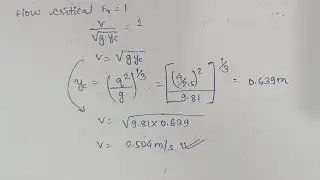 flow critical Fr = 1
v / √g.yc = 1
v = √g yc
yc = (q² / g)^1/3 = [(4/2.5)² / 9.81]^1/3 = 0.639m
v = √9.81 x 0.639
v = 2.504 m/s